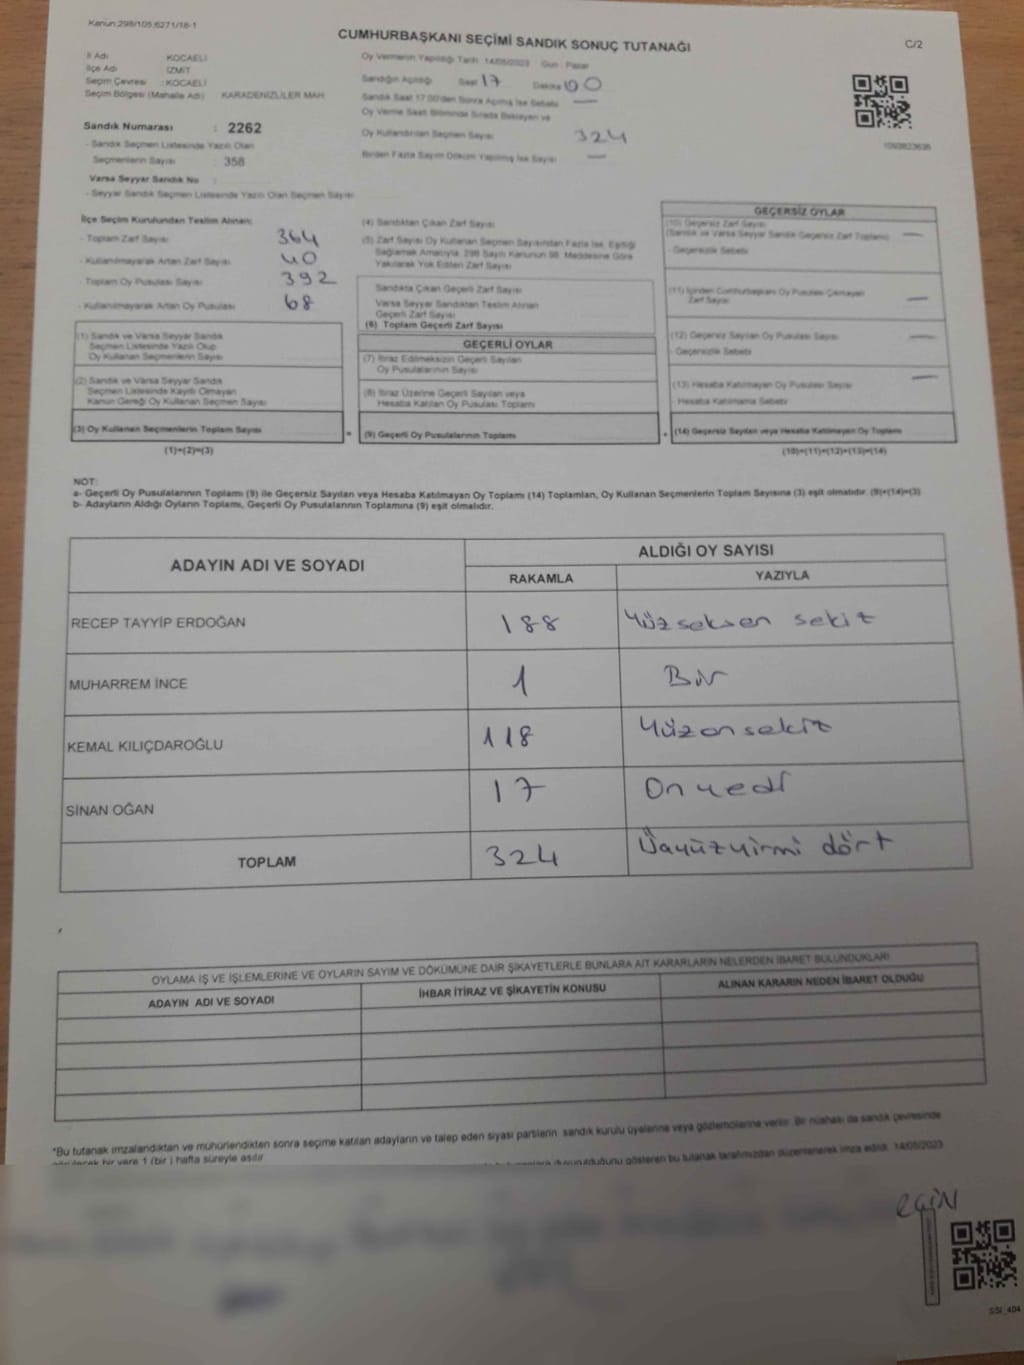 Kanun:298/105;6271/18-1
CUMHURBAŞKANI SEÇİMİ SANDIK SONUÇ TUTANAĞI
C/2
İl Adı KOCAELİ
İlçe Adı İZMİT
Seçim Çevresi : KOCAELİ
Seçim Bölgesi (Mahalle Adı) KARADENİZLİLER MAH.
Oy Vermenin Yapıldığı Tarih: 14/05/2023 Gün : Pazar
Sandığın Açıldığı Saat 17 Dakika 00
Sandık Saat 17.00'den Sonra Açılmış İse Sebebi —
Oy Verme Saati Bitiminde Sırada Bekleyen ve
Oy Kullandırılan Seçmen Sayısı 324
Birden Fazla Sayım Döküm Yapılmış İse Sayısı —
Sandık Numarası : 2262
- Sandık Seçmen Listesinde Yazılı Olan
Seçmenlerin Sayısı : 358
Varsa Seyyar Sandık No :
- Seyyar Sandık Seçmen Listesinde Yazılı Olan Seçmen Sayısı
İlçe Seçim Kurulundan Teslim Alınan:
- Toplam Zarf Sayısı 364
- Kullanılmayarak Artan Zarf Sayısı 40
- Toplam Oy Pusulası Sayısı 392
- Kullanılmayarak Artan Oy Pusulası 68
(1) Sandık ve Varsa Seyyar Sandık
Seçmen Listesinde Yazılı Olup
Oy Kullanan Seçmenlerin Sayısı
(2) Sandık ve Varsa Seyyar Sandık
Seçmen Listesinde Kayıtlı Olmayan
Kanun Gereği Oy Kullanan Seçmen Sayısı
(3) Oy Kullanan Seçmenlerin Toplam Sayısı
(1)+(2)=(3)
(4) Sandıktan Çıkan Zarf Sayısı
(5) Zarf Sayısı Oy Kullanan Seçmen Sayısından Fazla İse, Eşitliği
Sağlamak Amacıyla, 298 Sayılı Kanunun 98. Maddesine Göre
Yakılarak Yok Edilen Zarf Sayısı
Sandıkta Çıkan Geçerli Zarf Sayısı
Varsa Seyyar Sandıktan Teslim Alınan
Geçerli Zarf Sayısı
(6) Toplam Geçerli Zarf Sayısı
GEÇERLİ OYLAR
(7) İtiraz Edilmeksizin Geçerli Sayılan
Oy Pusulalarının Sayısı
(8) İtiraz Üzerine Geçerli Sayılan veya
Hesaba Katılan Oy Pusulası Toplamı
= (9) Geçerli Oy Pusulalarının Toplamı
GEÇERSİZ OYLAR
(10) Geçersiz Zarf Sayısı —
(Sandık ve Varsa Seyyar Sandık Geçersiz Zarf Toplamı)
- Geçersizlik Sebebi
(11) İçinden Cumhurbaşkanı Oy Pusulası Çıkmayan
Zarf Sayısı —
(12) Geçersiz Sayılan Oy Pusulası Sayısı —
- Geçersizlik Sebebi
(13) Hesaba Katılmayan Oy Pusulası Sayısı —
- Hesaba Katılmama Sebebi
+ (14) Geçersiz Sayılan veya Hesaba Katılmayan Oy Toplamı
(10)+(11)+(12)+(13)=(14)
NOT:
a- Geçerli Oy Pusulalarının Toplamı (9) ile Geçersiz Sayılan veya Hesaba Katılmayan Oy Toplamı (14) Toplamları, Oy Kullanan Seçmenlerin Toplam Sayısına (3) eşit olmalıdır. (9)+(14)=(3)
b- Adayların Aldığı Oyların Toplamı, Geçerli Oy Pusulalarının Toplamına (9) eşit olmalıdır.
ADAYIN ADI VE SOYADI
ALDIĞI OY SAYISI
RAKAMLA YAZIYLA
RECEP TAYYİP ERDOĞAN 188 Yüz seksen sekiz
MUHARREM İNCE 1 Bir
KEMAL KILIÇDAROĞLU 118 Yüzonsekiz
SİNAN OĞAN 17 On yedi
TOPLAM 324 Üçyüzyirmi dört
OYLAMA İŞ VE İŞLEMLERİNE VE OYLARIN SAYIM VE DÖKÜMÜNE DAİR ŞİKAYETLERLE BUNLARA AİT KARARLARIN NELERDEN İBARET BULUNDUKLARI
ADAYIN ADI VE SOYADI İHBAR İTİRAZ VE ŞİKAYETİN KONUSU ALINAN KARARIN NEDEN İBARET OLDUĞU
*Bu tutanak imzalandıktan ve mühürlendikten sonra seçime katılan adayların ve talep eden siyasi partilerin sandık kurulu üyelerine veya gözlemcilerine verilir. Bir nüshası da sandık çevresinde
görülecek bir yere 1 (bir ) hafta süreyle asılır.
duyurulduğunu gösteren bu tutanak tarafımızdan düzenlenerek imza edildi. 14/05/2023
SSİ_404